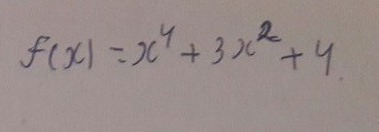 f(x) = x⁴ + 3x² + 4